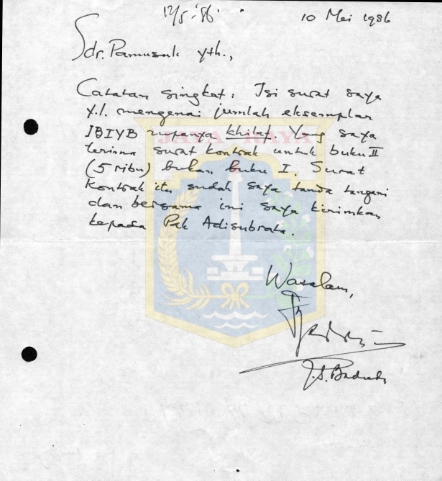 12/5 '86
10 Mei 1986
Sdr. Pamusuk yth.,
Catatan singkat: Isi surat saya
y.l. mengenai jumlah eksemplar
JBIYB rupanya khilaf. Yang saya
terima surat kontrak untuk buku II
(5 ribu) bukan buku I. Surat
kontrak itu sudah saya tanda tangani
dan bersama ini saya kirimkan
kepada Pak Adisubrata.
Wasalam,
J.S. Badudu
JAYA RAYA